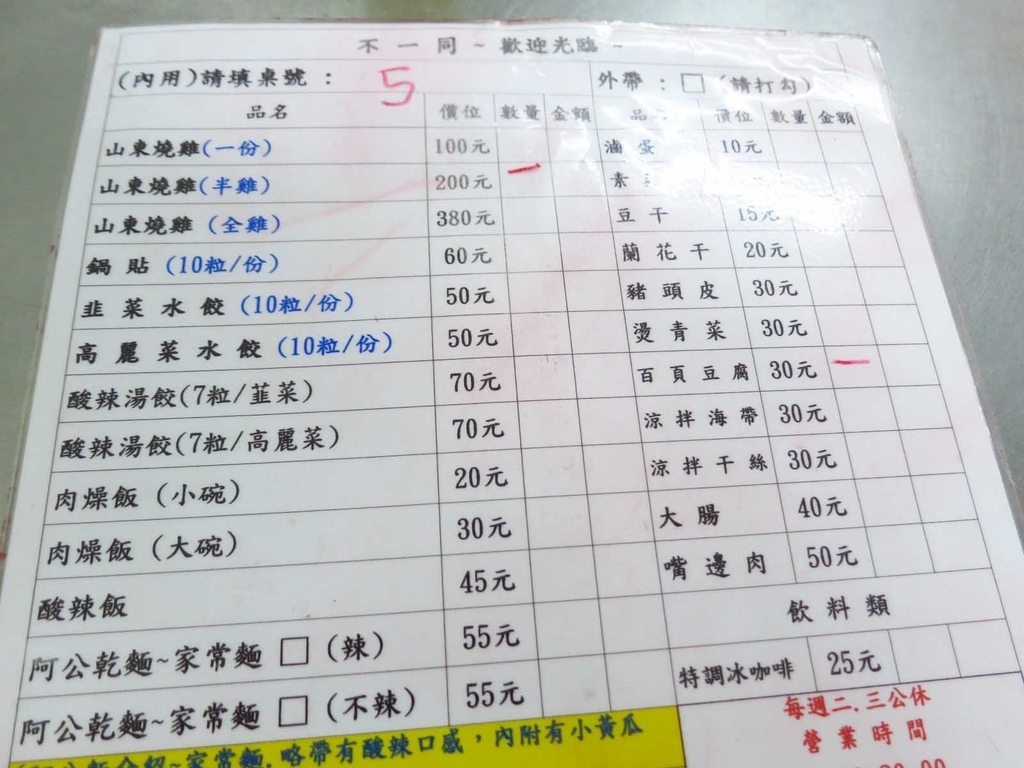 不一同~歡迎光臨~
(內用)請填桌號： 5 外帶：□ (請打勾)
品名 價位 數量 金額 品 價位 數量 金額
山東燒雞(一份) 100元 滷蛋 10元
山東燒雞(半雞) 200元 一 素
山東燒雞 (全雞) 380元 豆干 15元
鍋貼 (10粒/份) 60元 蘭花干 20元
韭菜水餃 (10粒/份) 50元 豬頭皮 30元
高麗菜水餃 (10粒/份) 50元 燙青菜 30元
酸辣湯餃(7粒/韮菜) 70元 百頁豆腐 30元 一
酸辣湯餃(7粒/高麗菜) 70元 涼拌海帶 30元
肉燥飯 (小碗) 20元 涼拌干絲 30元
肉燥飯 (大碗) 30元 大腸 40元
酸辣飯 45元 嘴邊肉 50元
阿公乾麵~家常麵 □ (辣) 55元 飲料類
阿公乾麵~家常麵 □ (不辣) 55元 特調冰咖啡 25元
介紹~家常麵.略帶有酸辣口感，內附有小黃瓜
每週二.三公休
營業時間